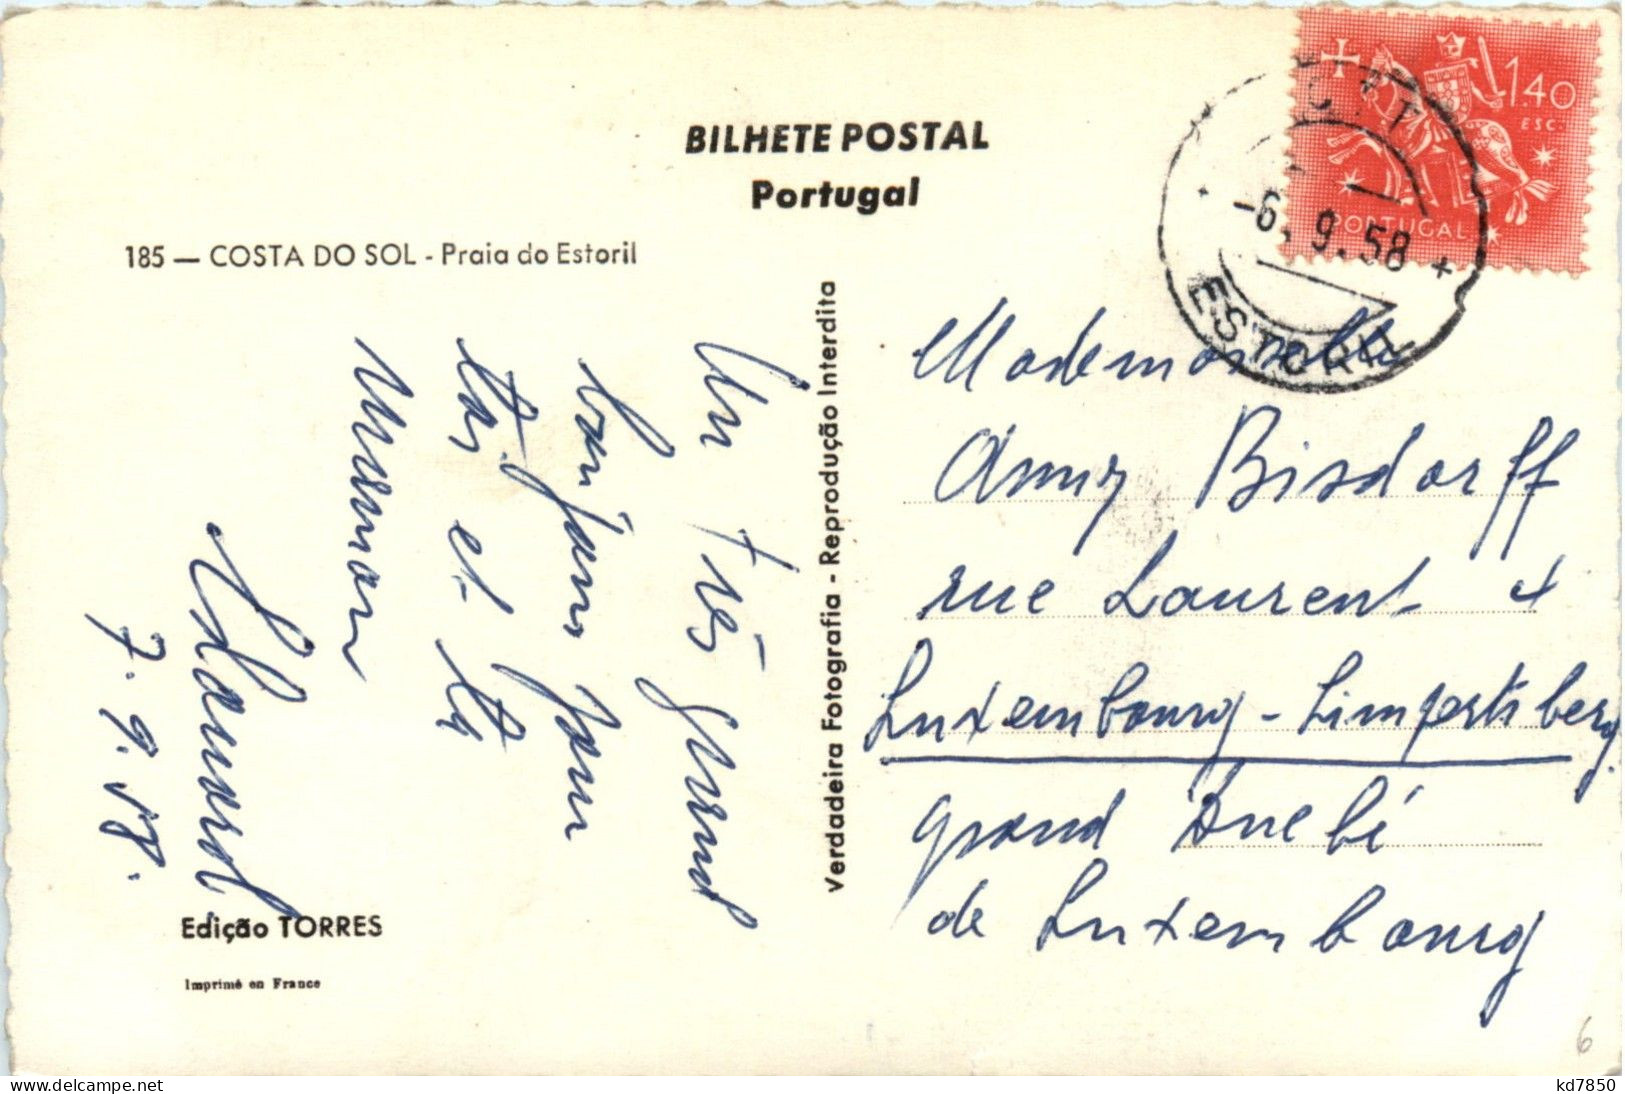 BILHETE POSTAL
Portugal
185 — COSTA DO SOL - Praia do Estoril
1.40
ESC.
PORTUGAL
-6. 9.58
ESTORIL
Un très grand
bonjour pour
toi et ta
maman
7.9.58.
Edição TORRES
Imprimé en France
Verdadeira Fotografia - Reprodução Interdita
Mademoiselle
Anny Bisdorff
rue Laurent 4
Luxembourg - Limpertsberg.
grand Duché
de Luxembourg
6
kd7850